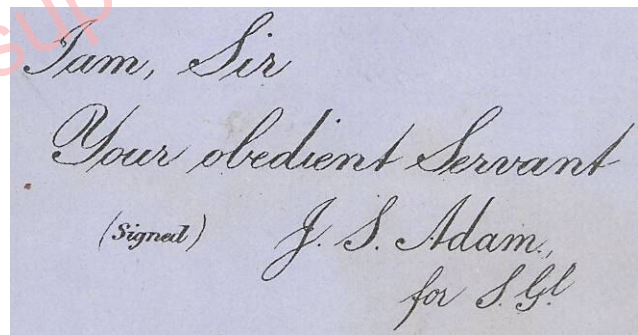 sup
I am, Sir
Your obedient Servant
(Signed) J. S. Adam,
for S. Gl